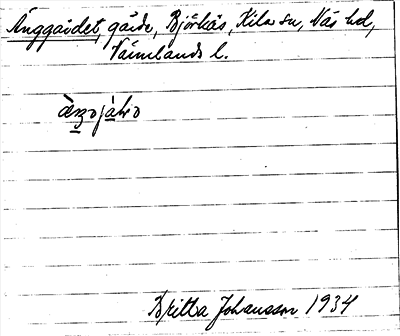 Änggärdet, gärde, Björkås, Kila sn, Näs hd,
Värmlands l.
Britta Johansson 1934